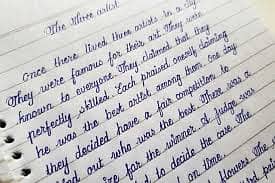 The three artist
Once there lived three artists in a city
They were famous for their art. They were
known to everyone. They claimed that they
perfectly skilled. Each praised oneself claiming
he was the best artist among them. One day
they decided have a fair competition to
out who was the best. There was a
for the winner. A judge was
to decide the case. The
on time.
flowers